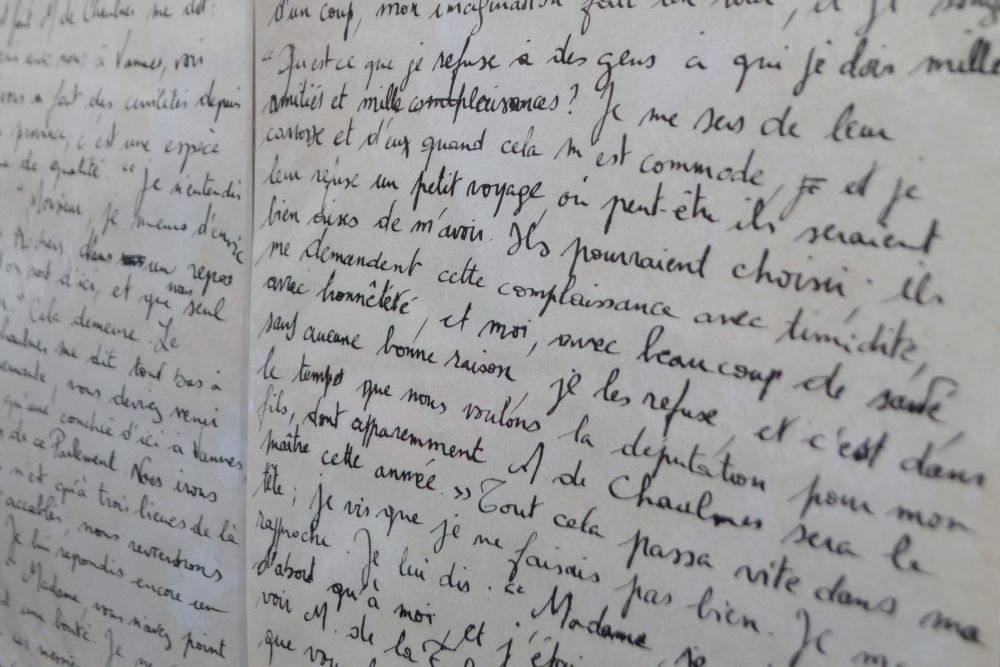 fait M. de Chaulnes me dit :
à Vannes, voir
a fait des civilités depuis
c'est une espèce
de qualité. " Je n'entendis
" Monsieur, je meurs d'envie
Rochers, dans un repos
d'ici, et que nous seul
Cela demeure. Le
me dit tout bas à
vous devriez venir
qu'une couchée d'ici à Vannes
de ce Parlement. Nous irons
n'est qu'à trois lieues de là
accablés, nous reviendrons
Je lui repondis encore un
Madame, vous n'avez point
une bonté. Je
d'un coup, mon imagination fait un tour, et je
" Qu'est ce que je refuse à des gens à qui je dois mille
amitiés et mille complaisances ? Je me sers de leur
carosse et d'eux quand cela m'est commode, et je
leur refuse un petit voyage où peut-être ils seraient
bien aises de m'avoir. Ils pourraient choisir ; ils
me demandent cette complaissance avec timidité,
avec honnêteté, et moi, avec beaucoup de santé,
sans aucune bonne raison, je les refuse, et c'est dans
le temps que nous voulons la députation pour mon
fils, dont apparemment M. de Chaulnes sera le
maître cette année. » Tout cela passa vite dans ma
tête ; je vis que je ne faisais pas bien. Je
rapproche. Je lui dis : " Madame, je
d'abord qu'à moi, et j'étais
voir M. de la
que vous